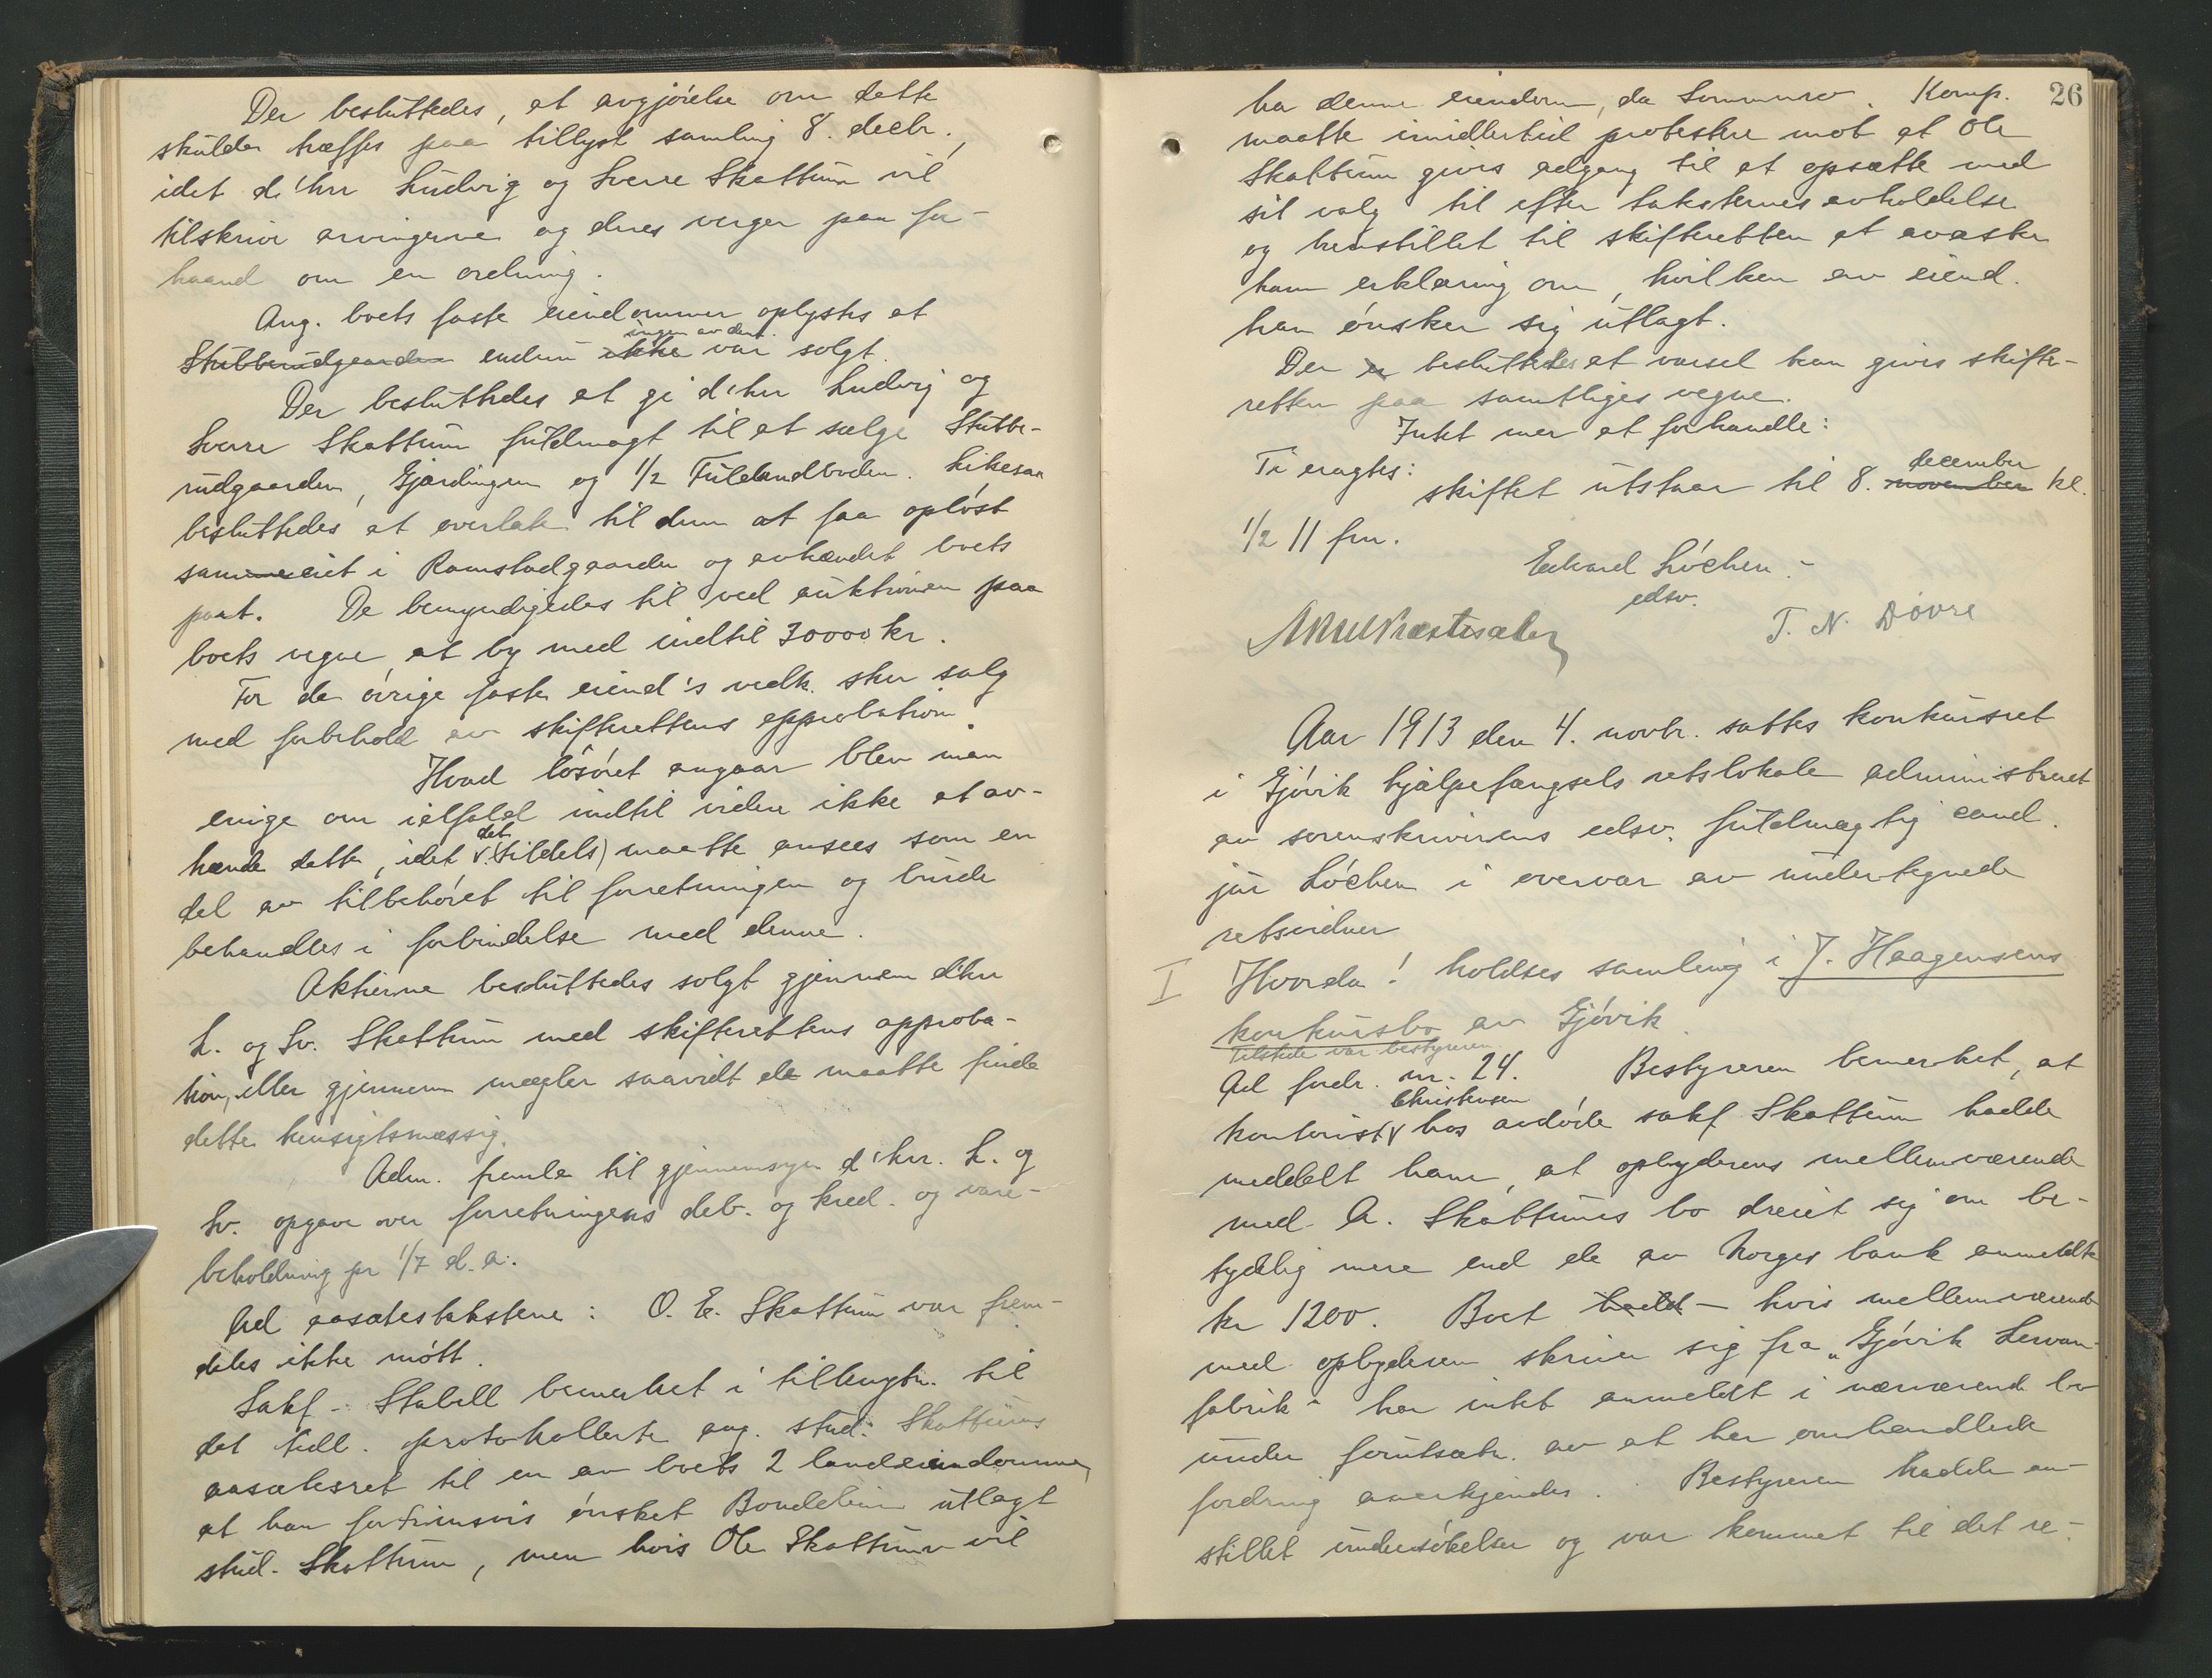 Der besluttedes, at avgjørelse om dette
skulde træffes paa tillyst samling 8. decbr.,
idet d'hrr Ludvig og Sverre Skattum vil
tilskrive arvingerne og deres verger paa for-
haand om en ordning.
Ang. boets faste eiendommer oplystes at
ingen av dem
Stubberudgaarden endnu ikke var solgt.
Der besluttedes at gi d'hrr Ludvig og
Sverre Skattum fuldmagt til at sælge Stubbe-
rudgaarden, Gjærdingen og 1/2 Fulelandboden. Likesaa
besluttedes at overlate til dem at faa opløst
sameiet i Ramstadgaarden og avhændet boets
part. De bemyndigedes til ved auktionen paa
boets vegne at by med indtil 30000 kr.
For de øvrige faste eiend's vedk. sker salg
med forbehold av skifterettens approbation.
Hvad løsøret angaar blev man
enige om ialfald indtil videre ikke at av-
det
hænde dette, idet v. (tildels) maatte ansees som en
del av tilbehøret til forretningen og burde
behandles i forbindelse med denne.
Aktierne besluttedes solgt gjennem d'hrr
L. og Sv. Skattum med skifterettens approba-
tion, eller gjennem mægler saavidt de maatte finde
dette hensigtsmæssig.
Adm. fremla til gjennemsyn d'hrr. L. og
Sv. opgave over forretningens deb. og kred. og vare-
beholdning pr 1/7 d.a.
Ad aasætestakstene: O. E. Skattum var frem-
deles ikke møtt.
Sakf. Stabell bemerket i tillæg til
det tidl. protokollerte ang. stud. Skattums
aasætesret til en av boets 2 landeiendommer,
at han fortrinsvis ønsket Bondelien utlagt
stud. Skattum, men hvis Ole Skattum vil
26
ha denne eiendom, da Sommero. Komp.
maatte imidlertid protestere mot at Ole
Skattum gives adgang til at opsætte med
sit valg til efter taksternes avholdelse
og henstillet til skifteretten at avæske
ham erklæring om, hvilken av eiend.
han ønsker sig utlagt.
Der er besluttedes at varsel kan gives skifte-
retten paa samtliges vegne.
Intet mer at forhandle:
Ti eragtes:
december
skiftet utstaar til 8. november kl.
1/2 11 fm.
Edvard Løchen
edsv.
T. N. Døvre
Aar 1913 den 4. novbr. sattes konkursret
i Gjøvik hjælpefængsels retslokale administreret
av sorenskriverens edsv. fuldmægtig cand.
jur Løchen i overvær av undertegnede
retsvidner
I Hvorda! holdtes samling i J. Haagensens
konkursbo av Gjøvik.
Tilstede var bestyreren.
Ad fordr. nr. 24. Bestyreren bemerket, at
Christensen
kontorist v hos avdøde sakf Skattum hadde
meddelt ham, at opbyderens mellemværende
med A. Skattums bo dreiet sig om be-
tydelig mere end de av Norges bank anmeldte
kr 1200. Boet – hvis mellemværende
med opbyderen skriver sig fra "Gjøvik
fabrik" har intet anmeldt i nærværende bo
under forutsætn. av at her omhandlede
fordring anerkjendes. Bestyreren hadde an-
stillet undersøkelser og var kommet til det re-